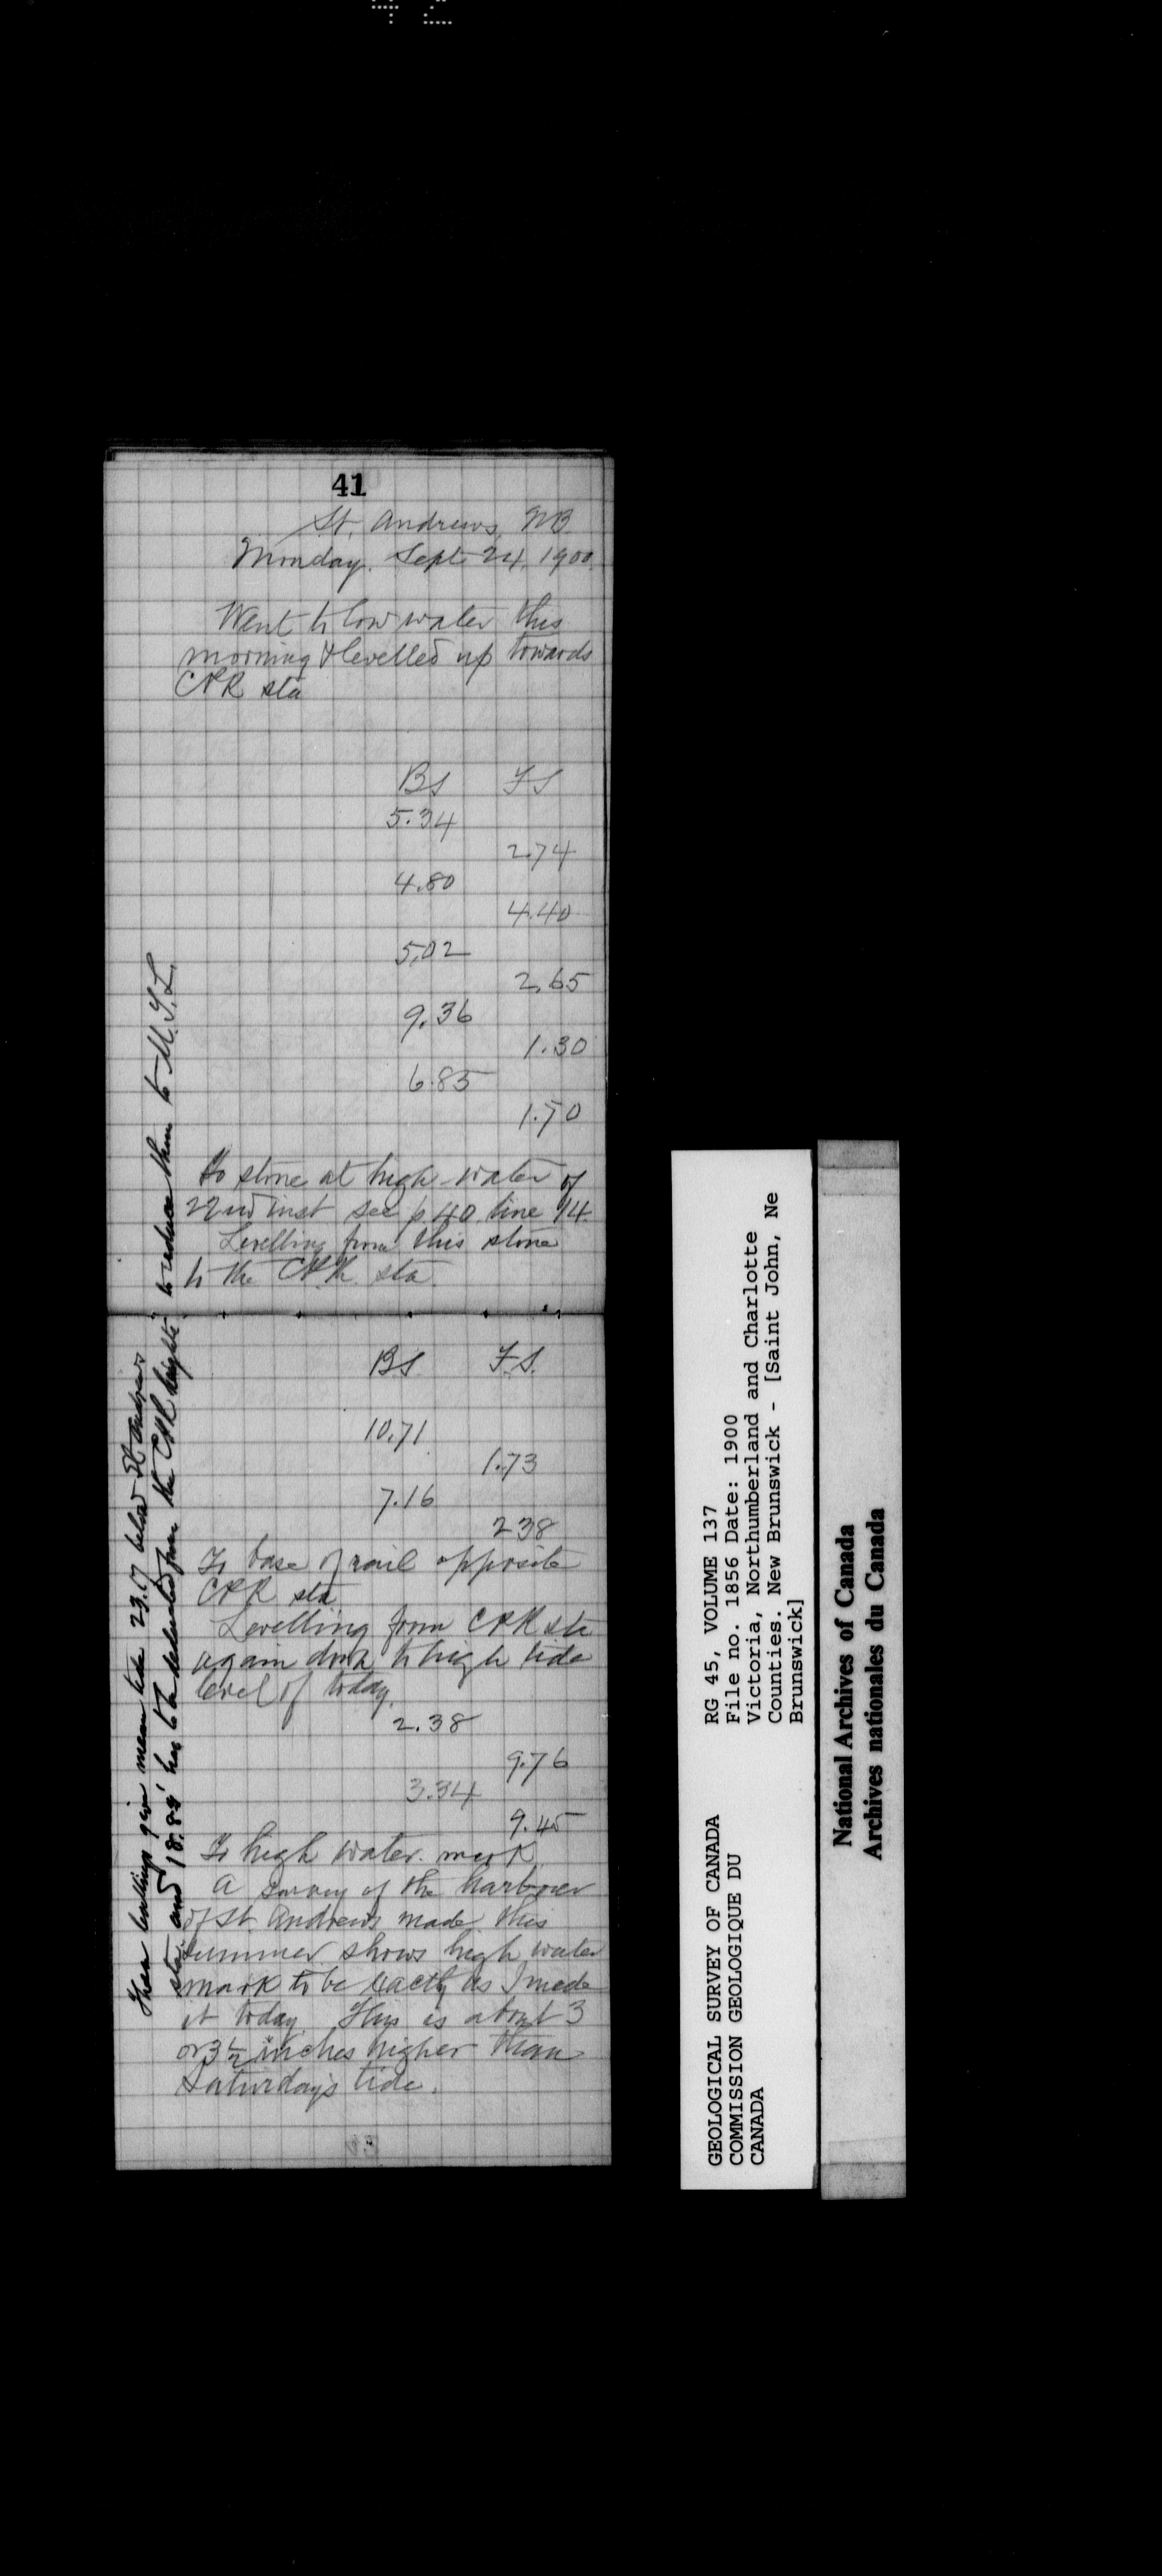 41
St. Andrews, N.B.
Monday. Sept 24, 1900.
Went to low water this
morning & levelled up towards
CPR sta
BS FS
5.34
2.74
4.80
4.40
5.02
2.65
9.36
1.30
6.85
1.70
to stone at high-water of
22nd inst see p 40 line 14.
Levelling from this stone
to the C.P.R. sta.
BS. F.S.
10.71
1.73
7.16
2 38
To base of rail opposite
CPR sta
Levelling from CPR sta
again down to high tide
level of today.
2.38
9.76
3.34
9.45
To high water mark
A survey of the harbour
of St Andrews made this
summer shows high water
mark to be exactly as I made
it today. This is about 3
or 3 1/2 inches higher than
Saturday's tide.
These levellings give mean tide 23.17 below St Andrews
sta. and 18.88' has to be deducted from the CPR heights to reduce them to M.T.L.
RG 45, VOLUME 137
File no. 1856 Date: 1900
Victoria, Northumberland and Charlotte
Counties. New Brunswick - [Saint John, Ne
Brunswick]
GEOLOGICAL SURVEY OF CANADA
COMMISSION GEOLOGIQUE DU
CANADA
National Archives of Canada
Archives nationales du Canada